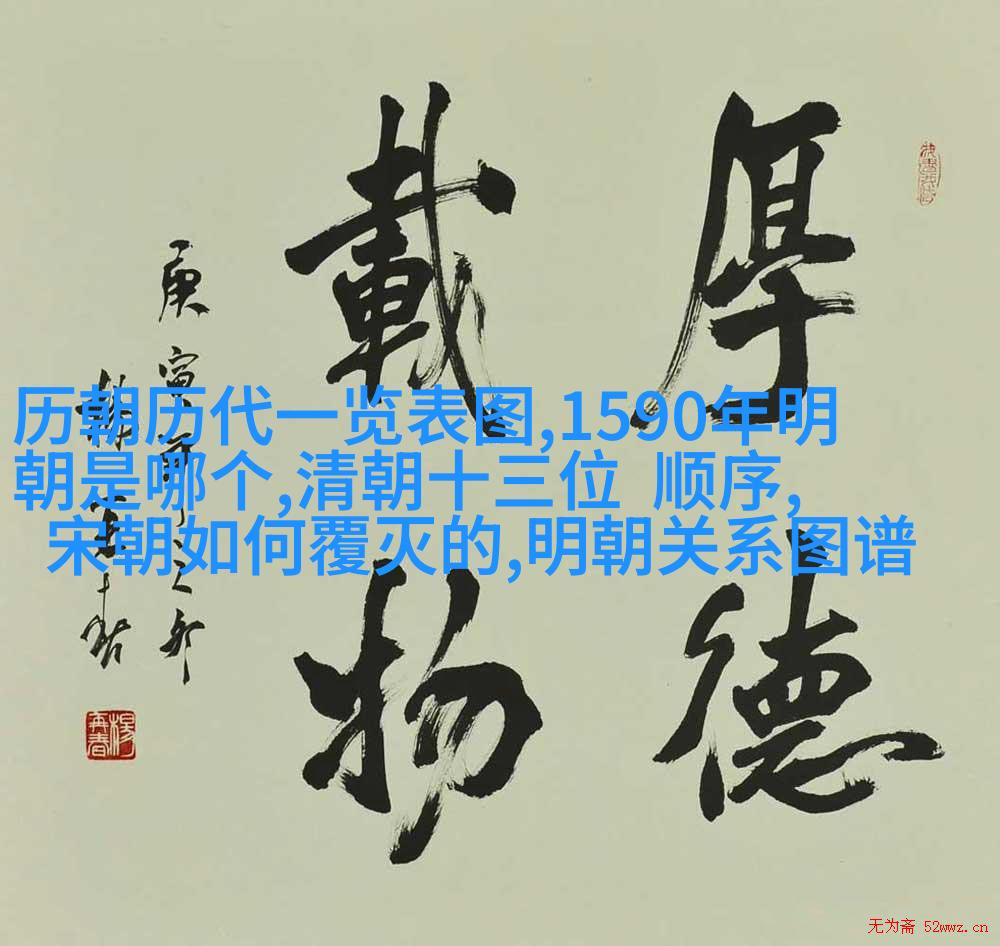 厚德
載物
庚寅
楊再春
历朝历代一览表图,1590年明
朝是哪个,清朝十三位 顺序,
宋朝如何覆灭的,明朝关系图谱
无为斋 52wwz.cn